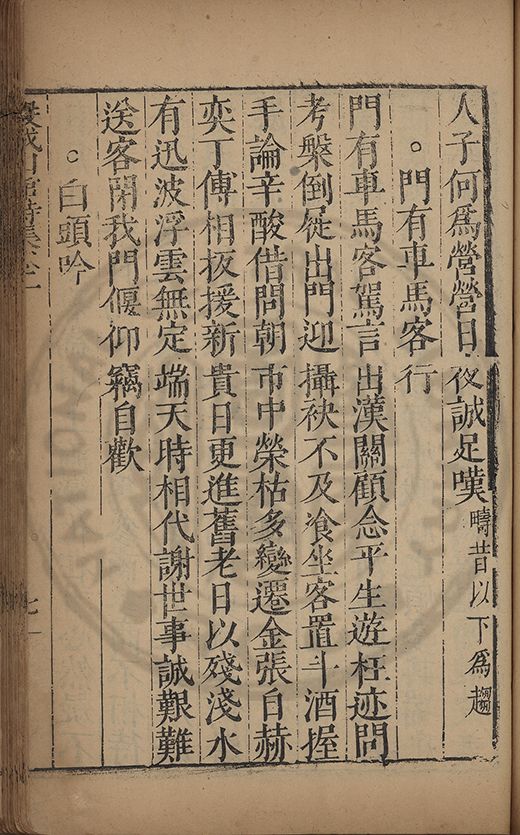 人子何爲營營日夜誠足嘆疇昔以下爲趨
○門有車馬客行
門有車馬客駕言出漢關顧念平生遊枉迹問
考槃倒屣出門迎攝袂不及飡坐客置斗酒握
手論辛酸借問朝市中榮枯多變遷金張自赫
奕丁傅相扳援新貴日更進舊老日以殘淺水
有迅波浮雲無定端天時相代謝世事誠艱難
送客閉我門偃仰竊自歡
○白頭吟
七